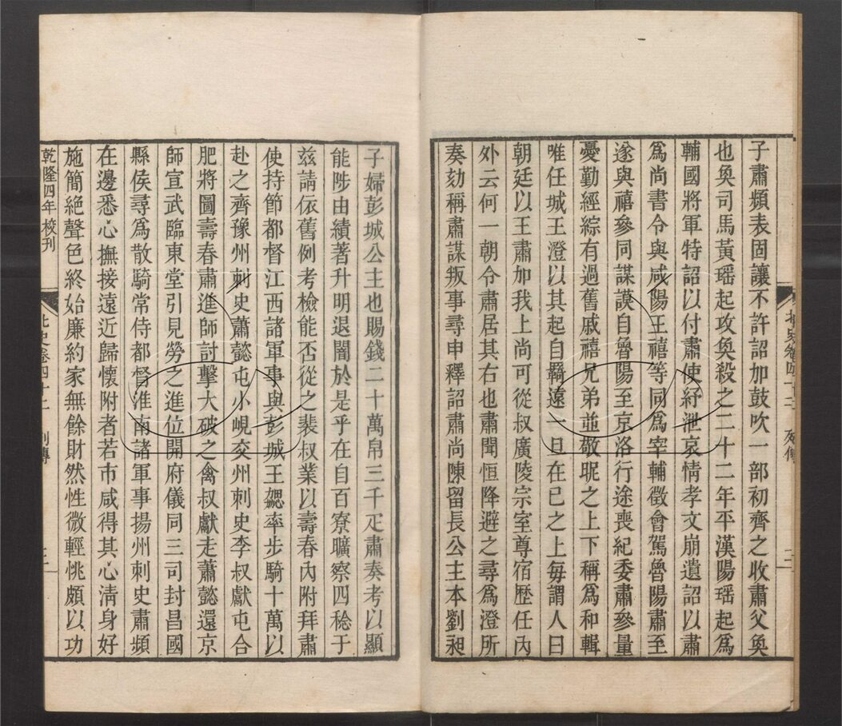 子肅頻表固讓不許詔加鼓吹一部初齊之收肅父奐
也奐司馬黃瑶起攻奐殺之二十二年平漢陽瑶起爲
輔國將軍特詔以付肅使紓泄哀情孝文崩遺詔以肅
爲尚書令與咸陽王禧等同爲宰輔徵會駕魯陽肅至
遂與禧參同謀謨自魯陽至京洛行途喪紀委肅參量
憂勤經綜有過舊戚禧兄弟並敬昵之上下稱爲和輯
唯任城王澄以其起自羈遠一旦在已之上每謂人曰
朝廷以王肅加我上尚可從叔廣陵宗室尊宿歷任內
外云何一朝令肅居其右也肅聞恒降避之尋爲澄所
奏劾稱肅謀叛事尋申釋詔肅尚陳留長公主本劉昶
子婦彭城公主也賜錢二十萬帛三千疋肅奏考以顯
能陟由績著升明退闇於是乎在自百寮曠察四稔于
兹請依舊例考檢能否從之裴叔業以壽春內附拜肅
使持節都督江西諸軍事與彭城王勰率步騎十萬以
赴之齊豫州刺史蕭懿屯小峴交州刺史李叔獻屯合
肥將圖壽春肅進師討擊大破之禽叔獻走蕭懿還京
師宣武臨東堂引見勞之進位開府儀同三司封昌國
縣侯尋爲散騎常侍都督淮南諸軍事揚州刺史肅頻
在邊悉心撫接遠近歸懷附者若市咸得其心清身好
施簡絕聲色終始廉約家無餘財然性微輕恌頗以功
乾隆四年校刊
北史卷四十二 列傳